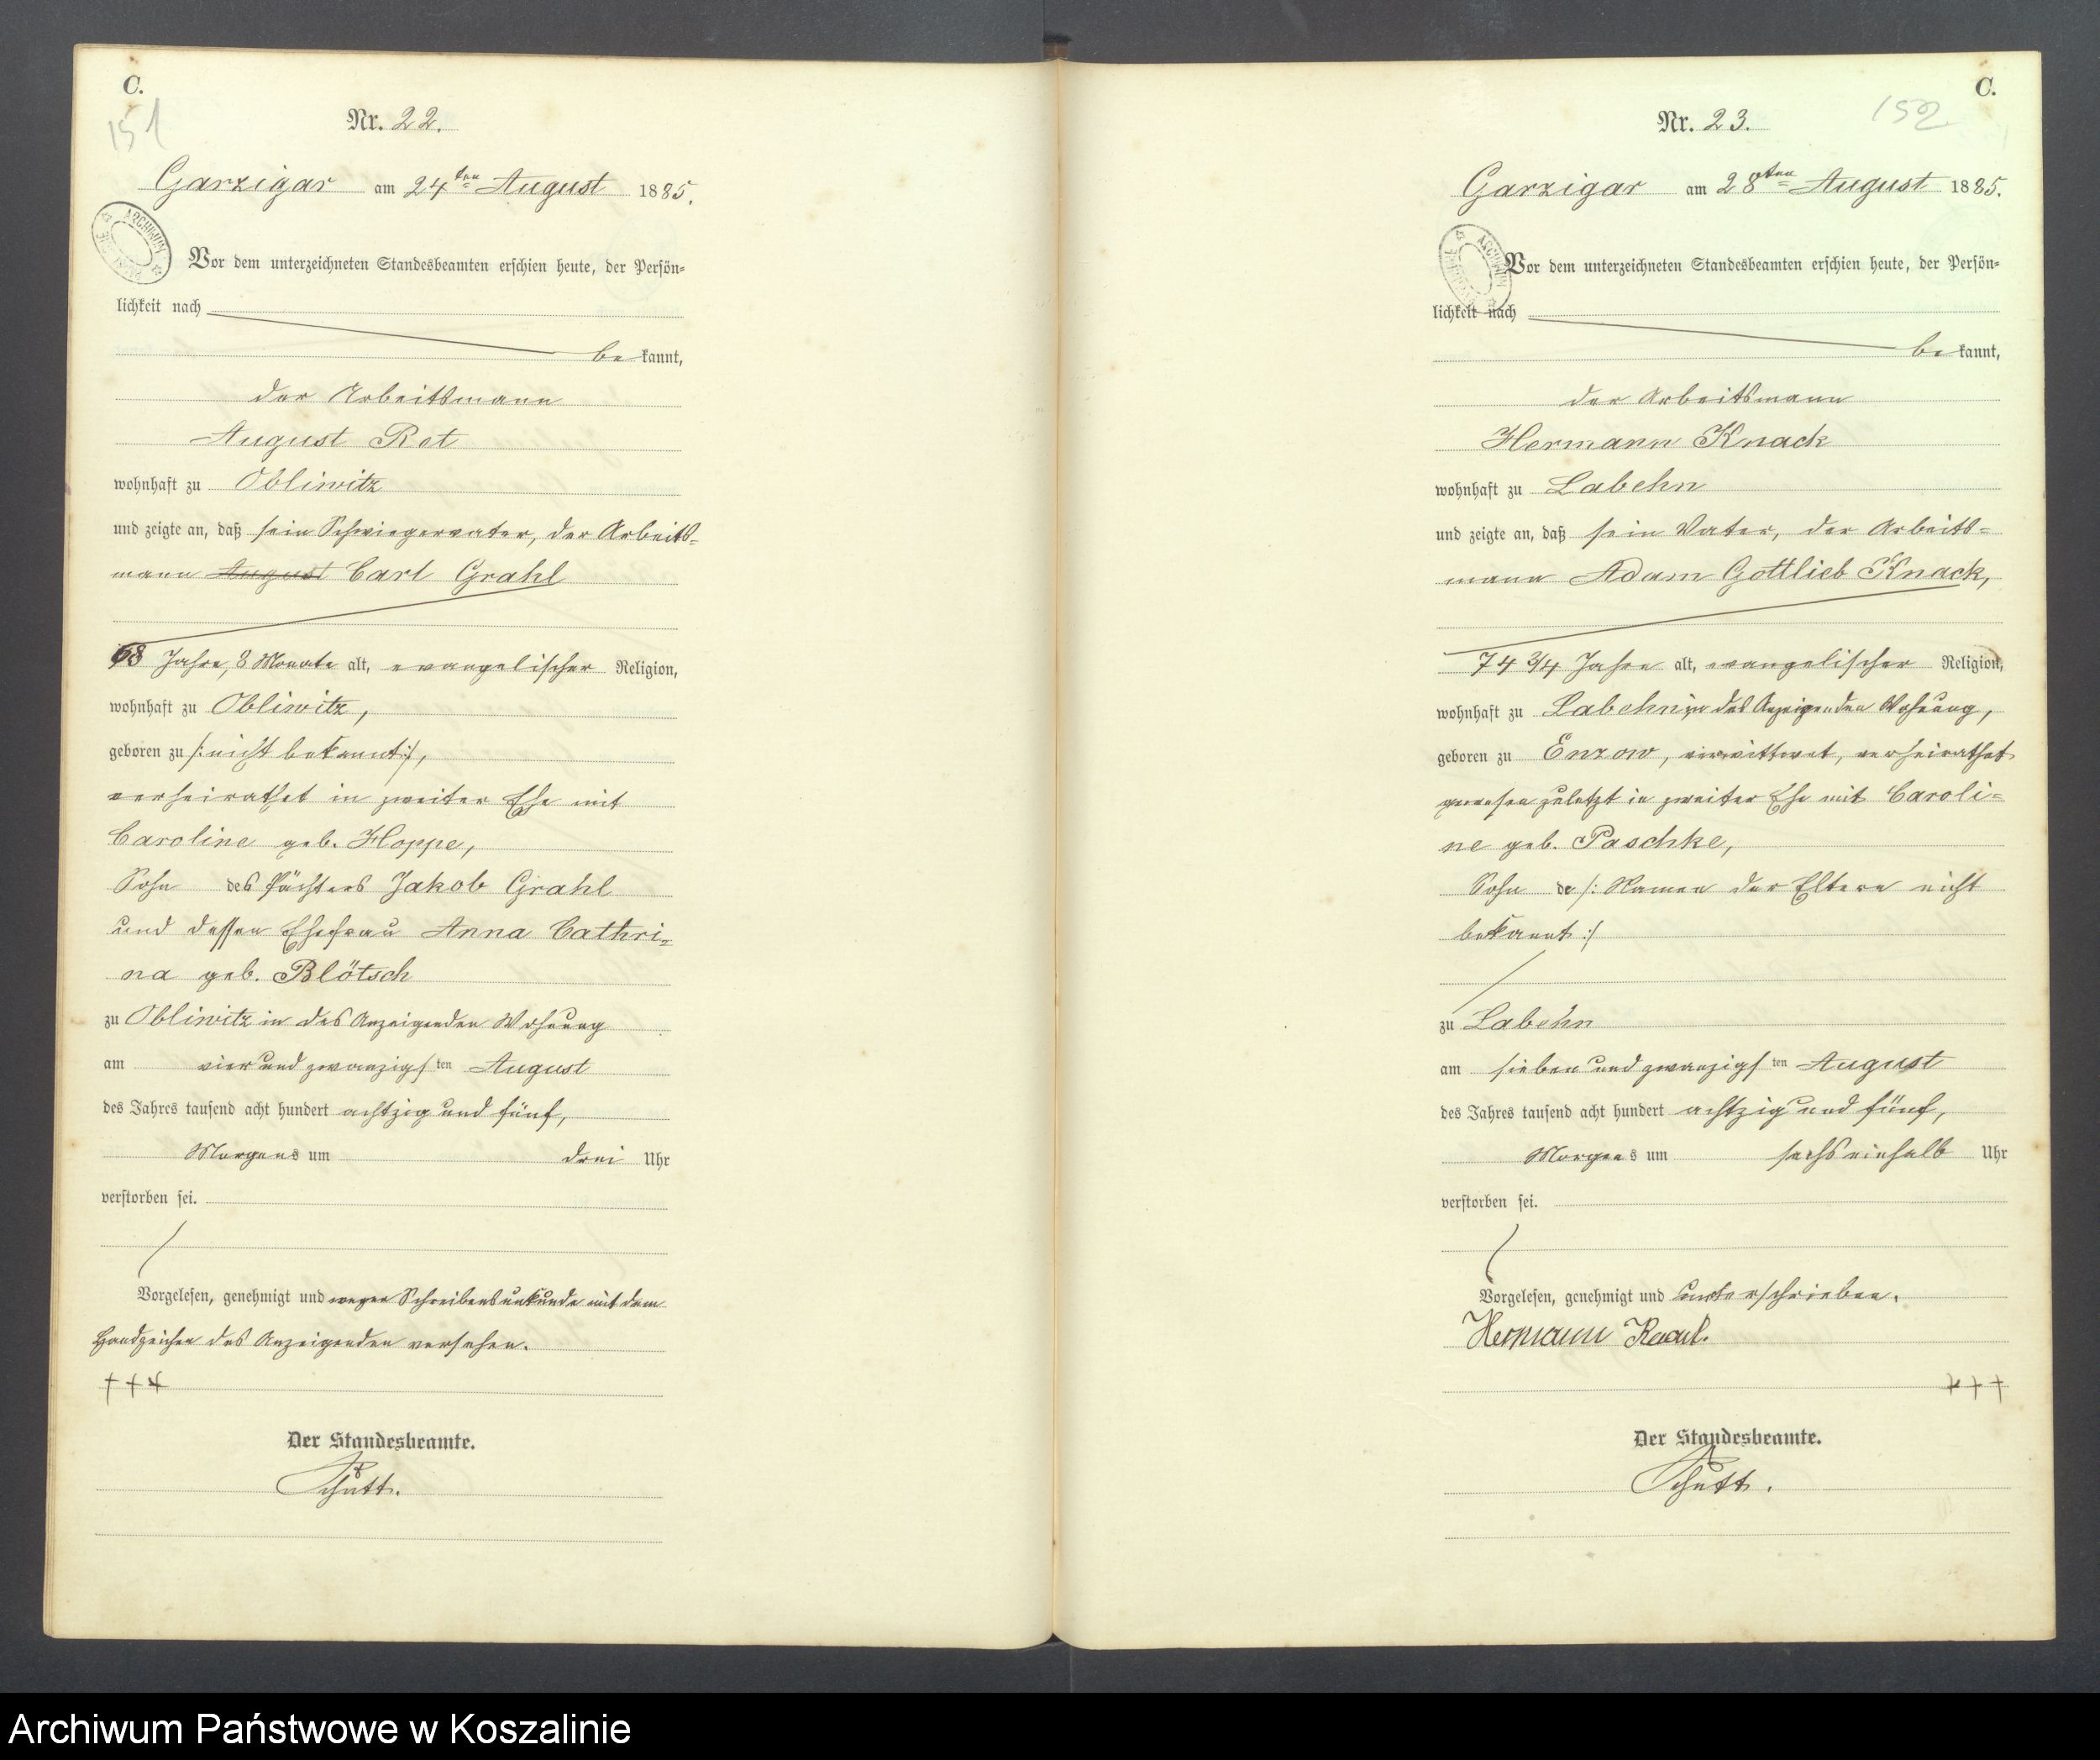 C.
151
Nr. 22.
Garzigar am 24ten August 1885.
Vor dem unterzeichneten Standesbeamten erschien heute, der Persön-
lichkeit nach
bekannt,
der Arbeitsmann
August Ret
wohnhaft zu Obliwitz
und zeigte an, daß sein Schwiegervater, der Arbeits-
mann August Carl Grahl
68 Jahre, 8 Monate alt, evangelischer Religion,
wohnhaft zu Obliwitz,
geboren zu /: nicht bekannt :/,
verheirathet in zweiter Ehe mit
Caroline geb. Hoppe,
Sohn des Pächters Jakob Grahl
und dessen Ehefrau Anna Cathri-
na geb. Blötsch
zu Obliwitz in des Anzeigenden Wohnung
am vier und zwanzigsten August
des Jahres tausend acht hundert achtzig und fünf,
Morgens um drei Uhr
verstorben sei.
Vorgelesen, genehmigt und wegen Schreibensunkunde mit dem
Handzeichen des Anzeigenden versehen.
+++
Der Standesbeamte.
Schütt.
C.
152
Nr. 23.
Garzigar am 28ten August 1885.
Vor dem unterzeichneten Standesbeamten erschien heute, der Persön-
lichkeit nach
bekannt,
der Arbeitsmann
Hermann Knack
wohnhaft zu Labehn
und zeigte an, daß sein Vater, der Arbeits-
mann Adam Gottlieb Knack,
74 3/4 Jahre alt, evangelischer Religion,
wohnhaft zu Labehn in des Anzeigenden Wohnung,
geboren zu Enzow, verwittwet, verheirathet
gewesen zuletzt in zweiter Ehe mit Caroli-
ne geb. Paschke,
Sohn de /: Namen der Eltern nicht
bekannt :/
zu Labehn
am sieben und zwanzigsten August
des Jahres tausend acht hundert achtzig und fünf,
Morgens um sechs einhalb Uhr
verstorben sei.
Vorgelesen, genehmigt und unterschrieben.
Hermann
+++
Der Standesbeamte.
Schütt.
Archiwum Państwowe w Koszalinie